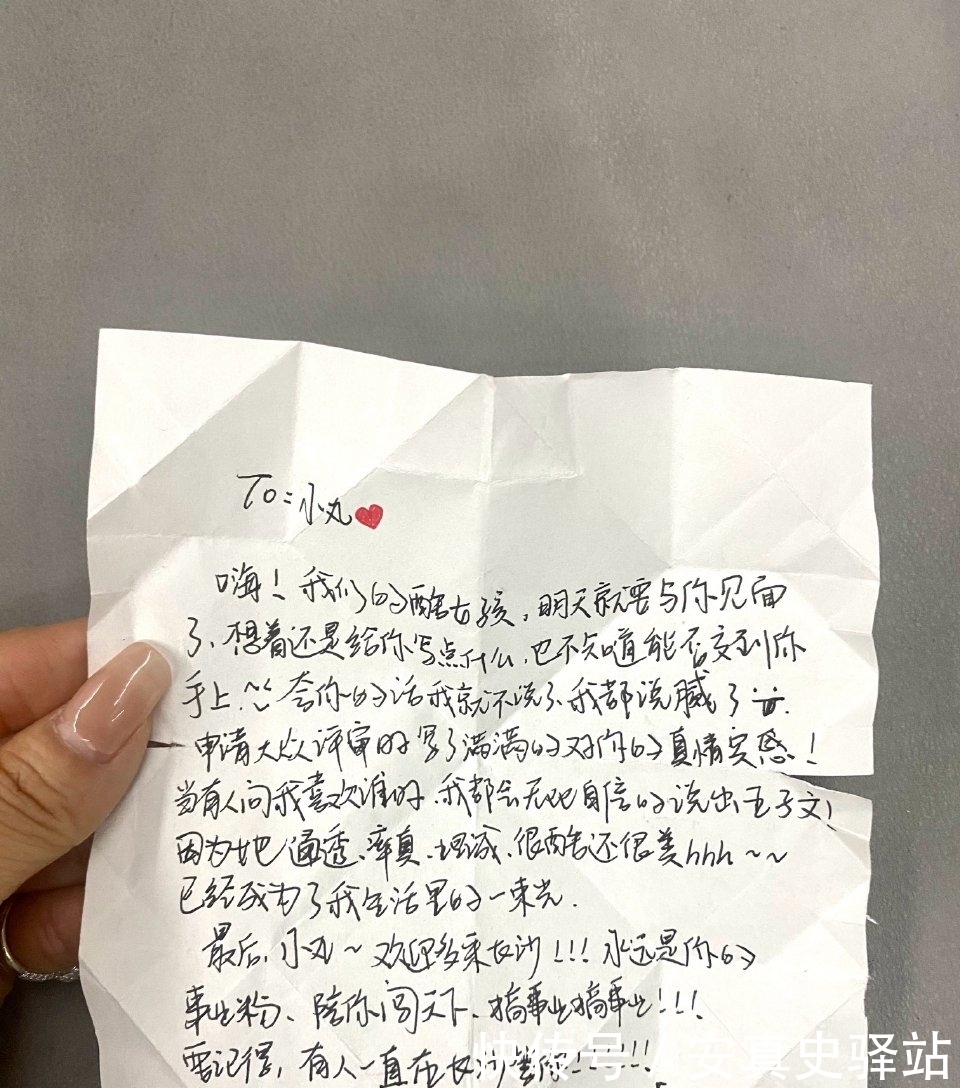 To:小丸❤
嗨!我们的酷女孩,明天就要与你见面
了、想着还是给你写点什么,也不知道能否交到你
手上.~~夸你的话我就不说了、我都说腻了
申请大众评审时写了满满的对你的真情实感!
当有人问我喜欢谁时、我都会无比自信的说出王子文!
因为她通透、率真、坦诚、很酷还很美hhh~~
已经成为了我生活里的一束光.
最后,小丸~欢迎多来长沙!!!永远是你的
事业粉、陪你闯天下、搞事业搞事业!!!
要记得,有人一直在长沙等你!!!!!
快传号/安真史驿站